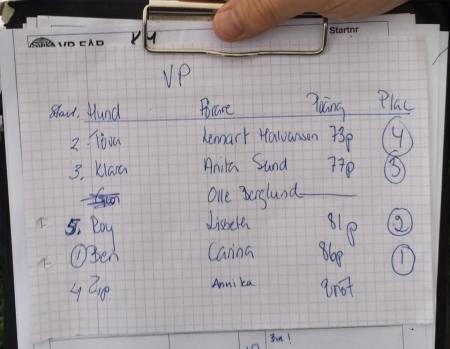 VP FÅR
Startnr
VP
Start. Hund Förare Poäng Plac
2. Töva Lennart Halvarsson 73p 4
3. Klara Anita Sund 77p 3
Olle Berglund
5. Roy Lisbeth 81p 2
1 Ben Carina 86p 1
4 Zip Annika